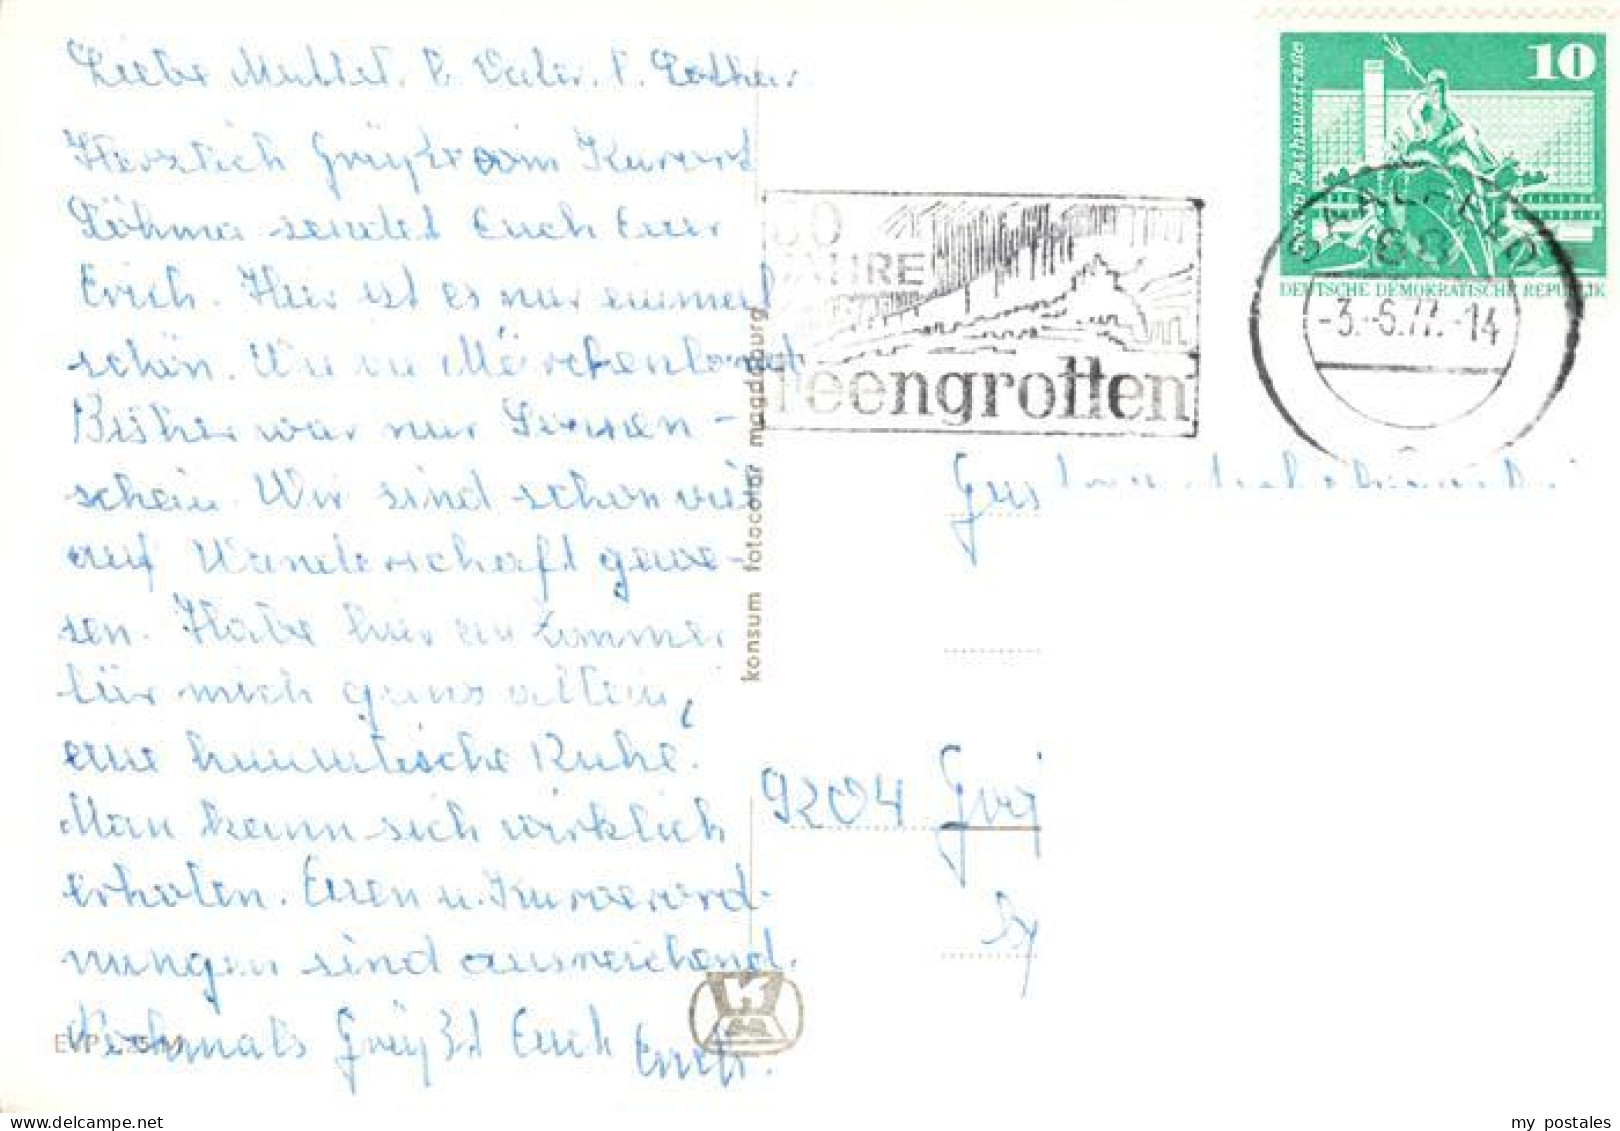 Liebe Mutter. u. Vater. u. Lothar
Herzlich Grüße vom Kurort
Löhma sendet Euch Euer
Erich. Hier ist es nur einmal
schön. Wie im Märchenland
Bisher war nur Sonnen-
schein. Wir sind schon viel
auf Wanderschaft gewe-
sen. Habe hier ein Zimmer
für mich ganz allein,
eine himmlische Ruhe.
Man kann sich wirklich
erholen. Essen u. Kurverord-
nungen sind ausreichend.
Nochmals Grüßt Euch Erich.
EVP
konsum fotocolor magdeburg
K
JAHRE
Feengrotten
10
Berlin, Rathausstraße
DEUTSCHE DEMOKRATISCHE REPUBLIK
SAALFELD
68
-3.-6.77.-14
9204
my postales